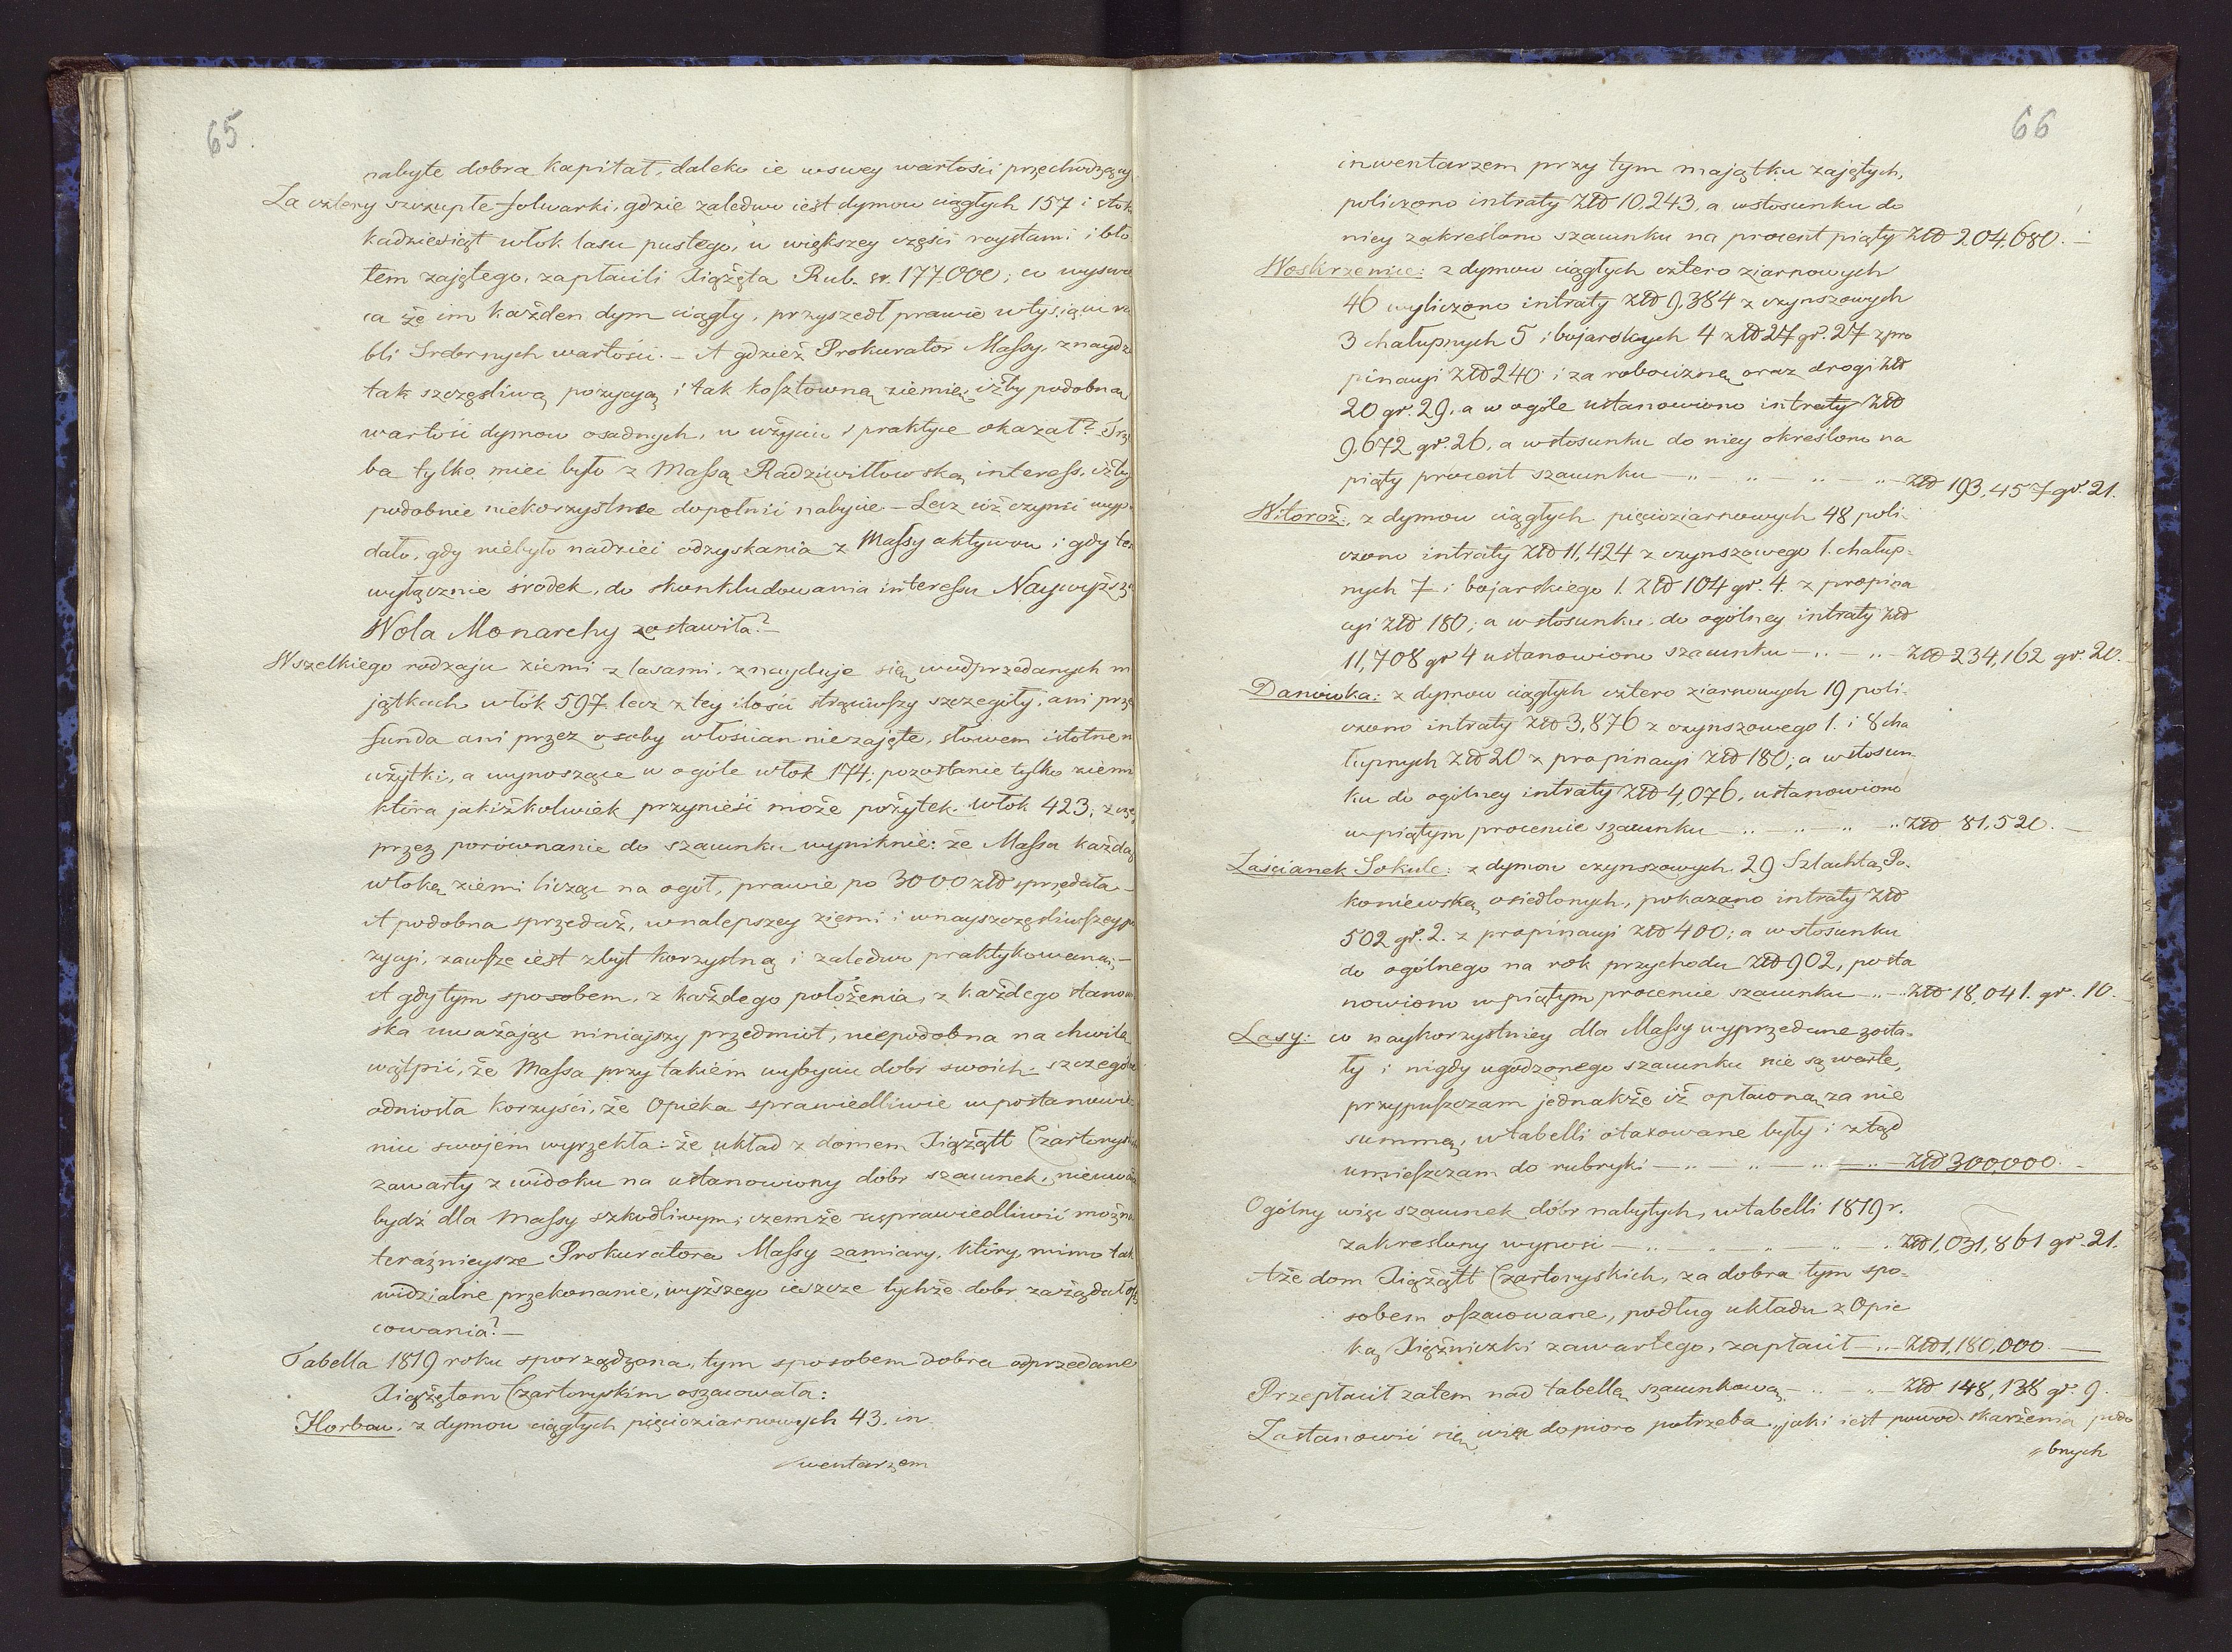 65.
nabyte dobra kapitał, daleko ie wswey wartości przechodzący
Za cztery szczupłe folwarki, gdzie zaledwo iest dymow ciągłych 157 i sto k
kadziesiąt włok lasu pustego, w większey części roystami i bło
tem zajętego, zapłacili Xiążęta Rub. sr. 177.000; co wyswie
ca że im każden dym ciągły, przyszedł prawie wtysiącu ru
bli Srebrnych wartości. – A gdzież Prokurator Massy, znaydz
tak szczęsliwą pozycyą i tak kosztowną ziemię, iżby podobną
wartość dymow osadnych, w użyciu i praktyce okazał? Trze
ba tylko mieć było z Massą Radziwiłłowską interess, iżby
podobnie niekorzystne dopełnić nabycie – Lecz cóż czynić wyp
dało, gdy niebyło nadziei odzyskania z Massy aktywow i gdy ten
wyłącznie środek, do skonkludowania interessu Naywyższa
Wola Monarchy zostawiła? –
Wszelkiego rodzaju ziemi z lasami, znayduje się wodprzedanych m
jątkach włók 597. lecz z tey ilości strąciwszy szczegóły, ani prze
funda ani przez osoby włościan niezajęte, słowem istotne n
użytki, a wynoszące w ogóle włok 174; pozostanie tylko ziemi
która jakiżkolwiek przynieść może pożytek włok 423; z czeg
przez porównanie do szacunku wyniknie: że Massa każdą
włokę ziemi licząc na ogół, prawie po 3000 złł sprzedała –
A podobna sprzedaż, wnalepszey ziemi i wnayszczęśliwszey po
zycyi, zawsze iest zbyt korzystną i zaledwo praktykowaną –
A gdy tym sposobem, z każdego położenia, z każdego stanow
ska uważając niniejszy przedmiot, niepodobna na chwilę
wątpić, że Massa przy takiém wybyciu dobr swoich szczegól
odniosła korzyści, że Opieka sprawiedliwie w postanowie
niu swojém wyrzekła: że układ z domem Xiążątt Czartorysk
zawarty z widoku na ustanowiony dobr szacunek, niemoże
bydź dla Massy szkodliwym; czemże usprawiedliwić można
teraźnieysze Prokuratora Massy zamiary, który mimo tak
widzialne przekonanie, wyższego ieszcze tychże dobr zażądał osz
cowania? –
Tabella 1819 roku sporządzona, tym sposobem dobra odprzedane
Xiążętom Czartoryskim oszacowała:
Horbow. z dymow ciągłych pięcioziarnowych 43. in
wentarzem
66
inwentarzem przy tym majątku zajętych,
policzono intraty Złł 10,243, a wstosunku do
niey zakreślono szacunku na procent piąty Złł 204,680. –
Woskrzenice: z dymow ciągłych cztero ziarnowych
46 wyliczono intraty złł 9,384 z czynszowych
3 chałupnych 5 i bojarskich 4 złł 27 gr. 27 z pro
pinacyi Złł 240 i za robociznę oraz drogi złł
20 gr. 29. a w ogóle ustanowiono intraty Złł
9,672 gr. 26, a wstosunku do niey określono na
piąty procent szacunku – „ – „ – „ – „ – Złł 193,457 gr. 21.
Witoroż: z dymow ciągłych pięcioziarnowych 48 poli
czono intraty Złł 11,424 z czynszowego 1. chałup-
nych 7 i bojarskiego 1. Złł 104 gr. 4. z propina
cyi Złł 180; a wstosunku do ogólney intraty złł
11,708 gr 4 ustanowiono szacunku – „ – „ – Złł 234,162 gr. 20.
Danówka: z dymow ciągłych cztero ziarnowych 19 poli-
czono intraty złł 3,876 z czynszowego 1. i 8 cha
łupnych Złł 20 z propinacyi złł 180; a wstosun-
ku do ogólney intraty Złł 4,076, ustanowiono
w piątym procencie szacunku – „ – „ – „ – „ Złł 81,520. –
Zaścianek Sokule: z dymow czynszowych 29 Szlachtą Po-
koniewską osiedlonych, pokazano intraty złł
502 gr. 2. z propinacyi złł 400; a wstosunku
do ogólnego na rok przychodu Złł 902, posta
nowiono w piątym procencie szacunku – „ – Złł 18,041. gr. 10. –
Lasy: co naykorzystniey dla Massy wyprzedane zosta-
ły i nigdy ugodzonego szacunku nie są warte,
przypuszczam jednakże iż opłaconą za nie
summą, wtabelli otaxowane były i ztąd
umieszczam do rubryki – „ – „ – „ – „ – Złł 300,000. –
Ogólny więc szacunek dóbr nabytych, wtabelli 1819 r.
zakreslony wynosi – „ – „ – „ – „ – „ Złł 1,031,861 gr. 21.
A że dom Xiążątt Czartoryskich, za dobra tym spo-
sobem oszacowane, podług układu z Opie
ką Xiężniczki zawartego, zapłacił – „ – Złł 1,180,000. –
Przepłacił zatem nad tabellę szacunkową – „ – „ – Złł 148,138 gr. 9.
Zastanowić się więc dopiero potrzeba, jaki iest powod skarżenia podo
„bnych